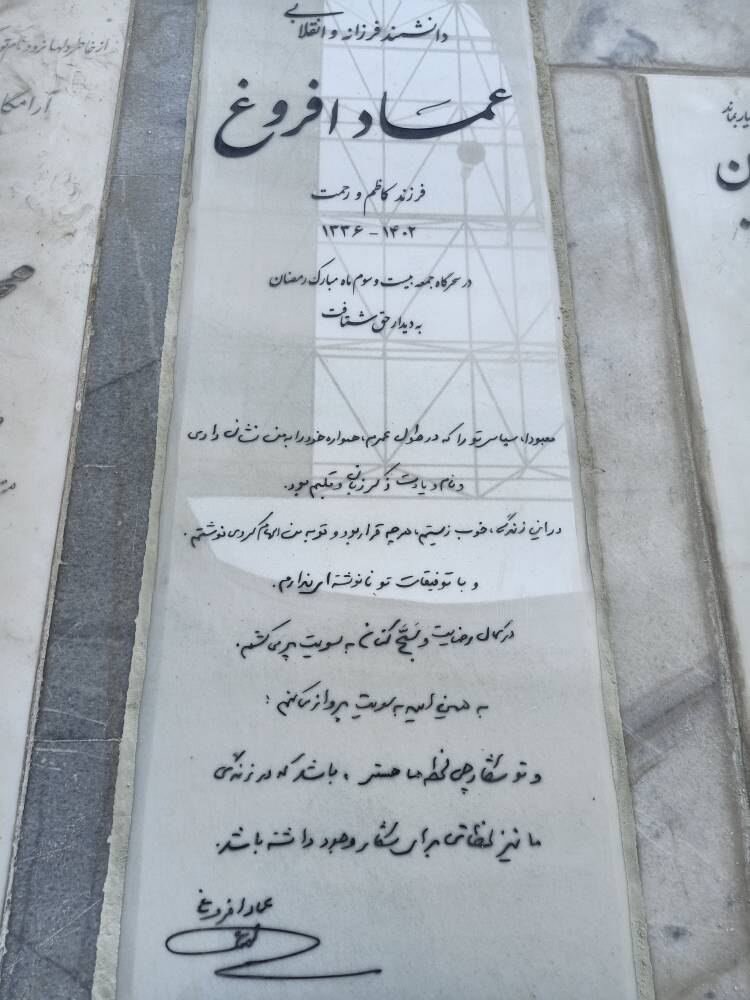 دانشمند فرزانه و انقلابی
عماد افروغ
فرزند کاظم و رحمت
۱۴۰۲ - ۱۳۳۶
در سحرگاه جمعه بیست و سوم ماه مبارک رمضان
به دیدار حق شتافت
معبودا، سپاس تو را که در طول عمرم، همواره خود را به من نشان دادی
و نام و یادت ذکر زبان و قلبم بود.
در این زندگی، خوب زیستم، هرچه قرار بود و تو به من الهام کردی نوشتم.
و با توفیقات تو نانوشته ای ندارم.
در کمال رضایت و تسبیح کنان به سویت پر می کشم.
به همین امید به سویت پرواز می کنم:
و تو شکارچی لحظه ها هستی، باشد که در زندگی
ما نیز لحظاتی برای شکار وجود داشته باشد.
عماد افروغ
از خاطر دلها نرود
آرامگاه
ین